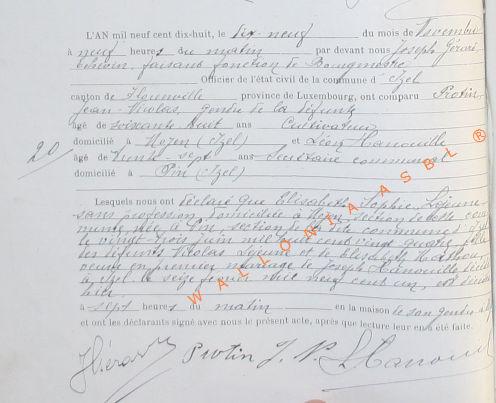 L'AN mil neuf cent dix-huit, le dix-neuf du mois de Novembre
à neuf heures du matin par devant nous Joseph Gérard
échevin, faisant fonction de Bourgmestre
Officier de l'état civil de la commune d'Izel
canton de Florenville province de Luxembourg, ont comparu Protin
Jean-Nicolas, gendre de la défunte
âgé de soixante huit ans Cultivateur
domicilié à Moyen (Izel) et Léon Hanouille
20
âgé de trente-sept ans Secrétaire communal
domicilié à Pin (Izel)
Lesquels nous ont déclaré que Elisabeth Sophie Lejeune
sans profession domiciliée à Moyen section de cette com
mune, née à Pin, section de la dite commune d'Izel
le vingt-trois juin mil huit cent vingt quatre, fille
des défunts Nicolas Lejeune et de Elisabeth
veuve en premier mariage de Joseph Hanouille décédé
à Izel le seize février mil neuf cent un, est décédée
hier,
à sept heures du matin en la maison de son gendre
et ont les déclarants signé avec nous le présent acte, après que lecture leur en a été faite.
Protin J. N. L Hanouille
WALLONIA ASBL ®